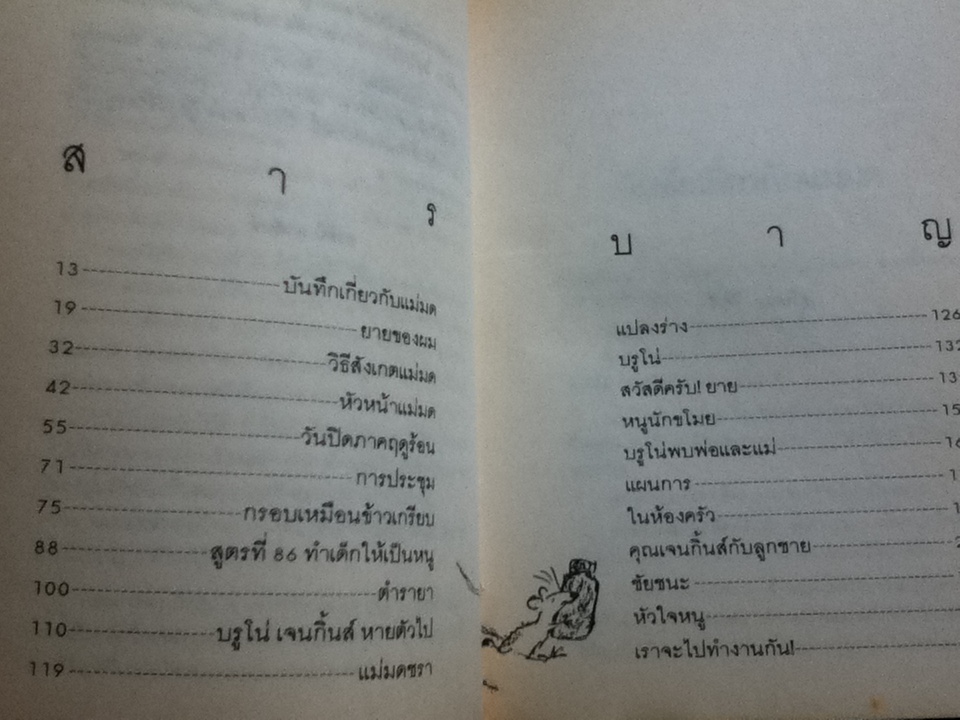 สาร
13 บันทึกเกี่ยวกับแม่มด
19 ยายของผม
32 วิธีสังเกตแม่มด
42 หัวหน้าแม่มด
55 วันปิดภาคฤดูร้อน
71 การประชุม
75 กรอบเหมือนข้าวเกรียบ
88 สูตรที่ 86 ทำเด็กให้เป็นหนู
100 ตำรายา
110 บรูโน่ เจนกิ้นส์ หายตัวไป
119 แม่มดชรา
บาญ
แปลงร่าง 126
บรูโน่ 132
สวัสดีครับ! ยาย
หนูนักขโมย
บรูโน่พบพ่อและแม่
แผนการ
ในห้องครัว
คุณเจนกิ้นส์กับลูกชาย
ชัยชนะ
หัวใจหนู
เราจะไปทำงานกัน!